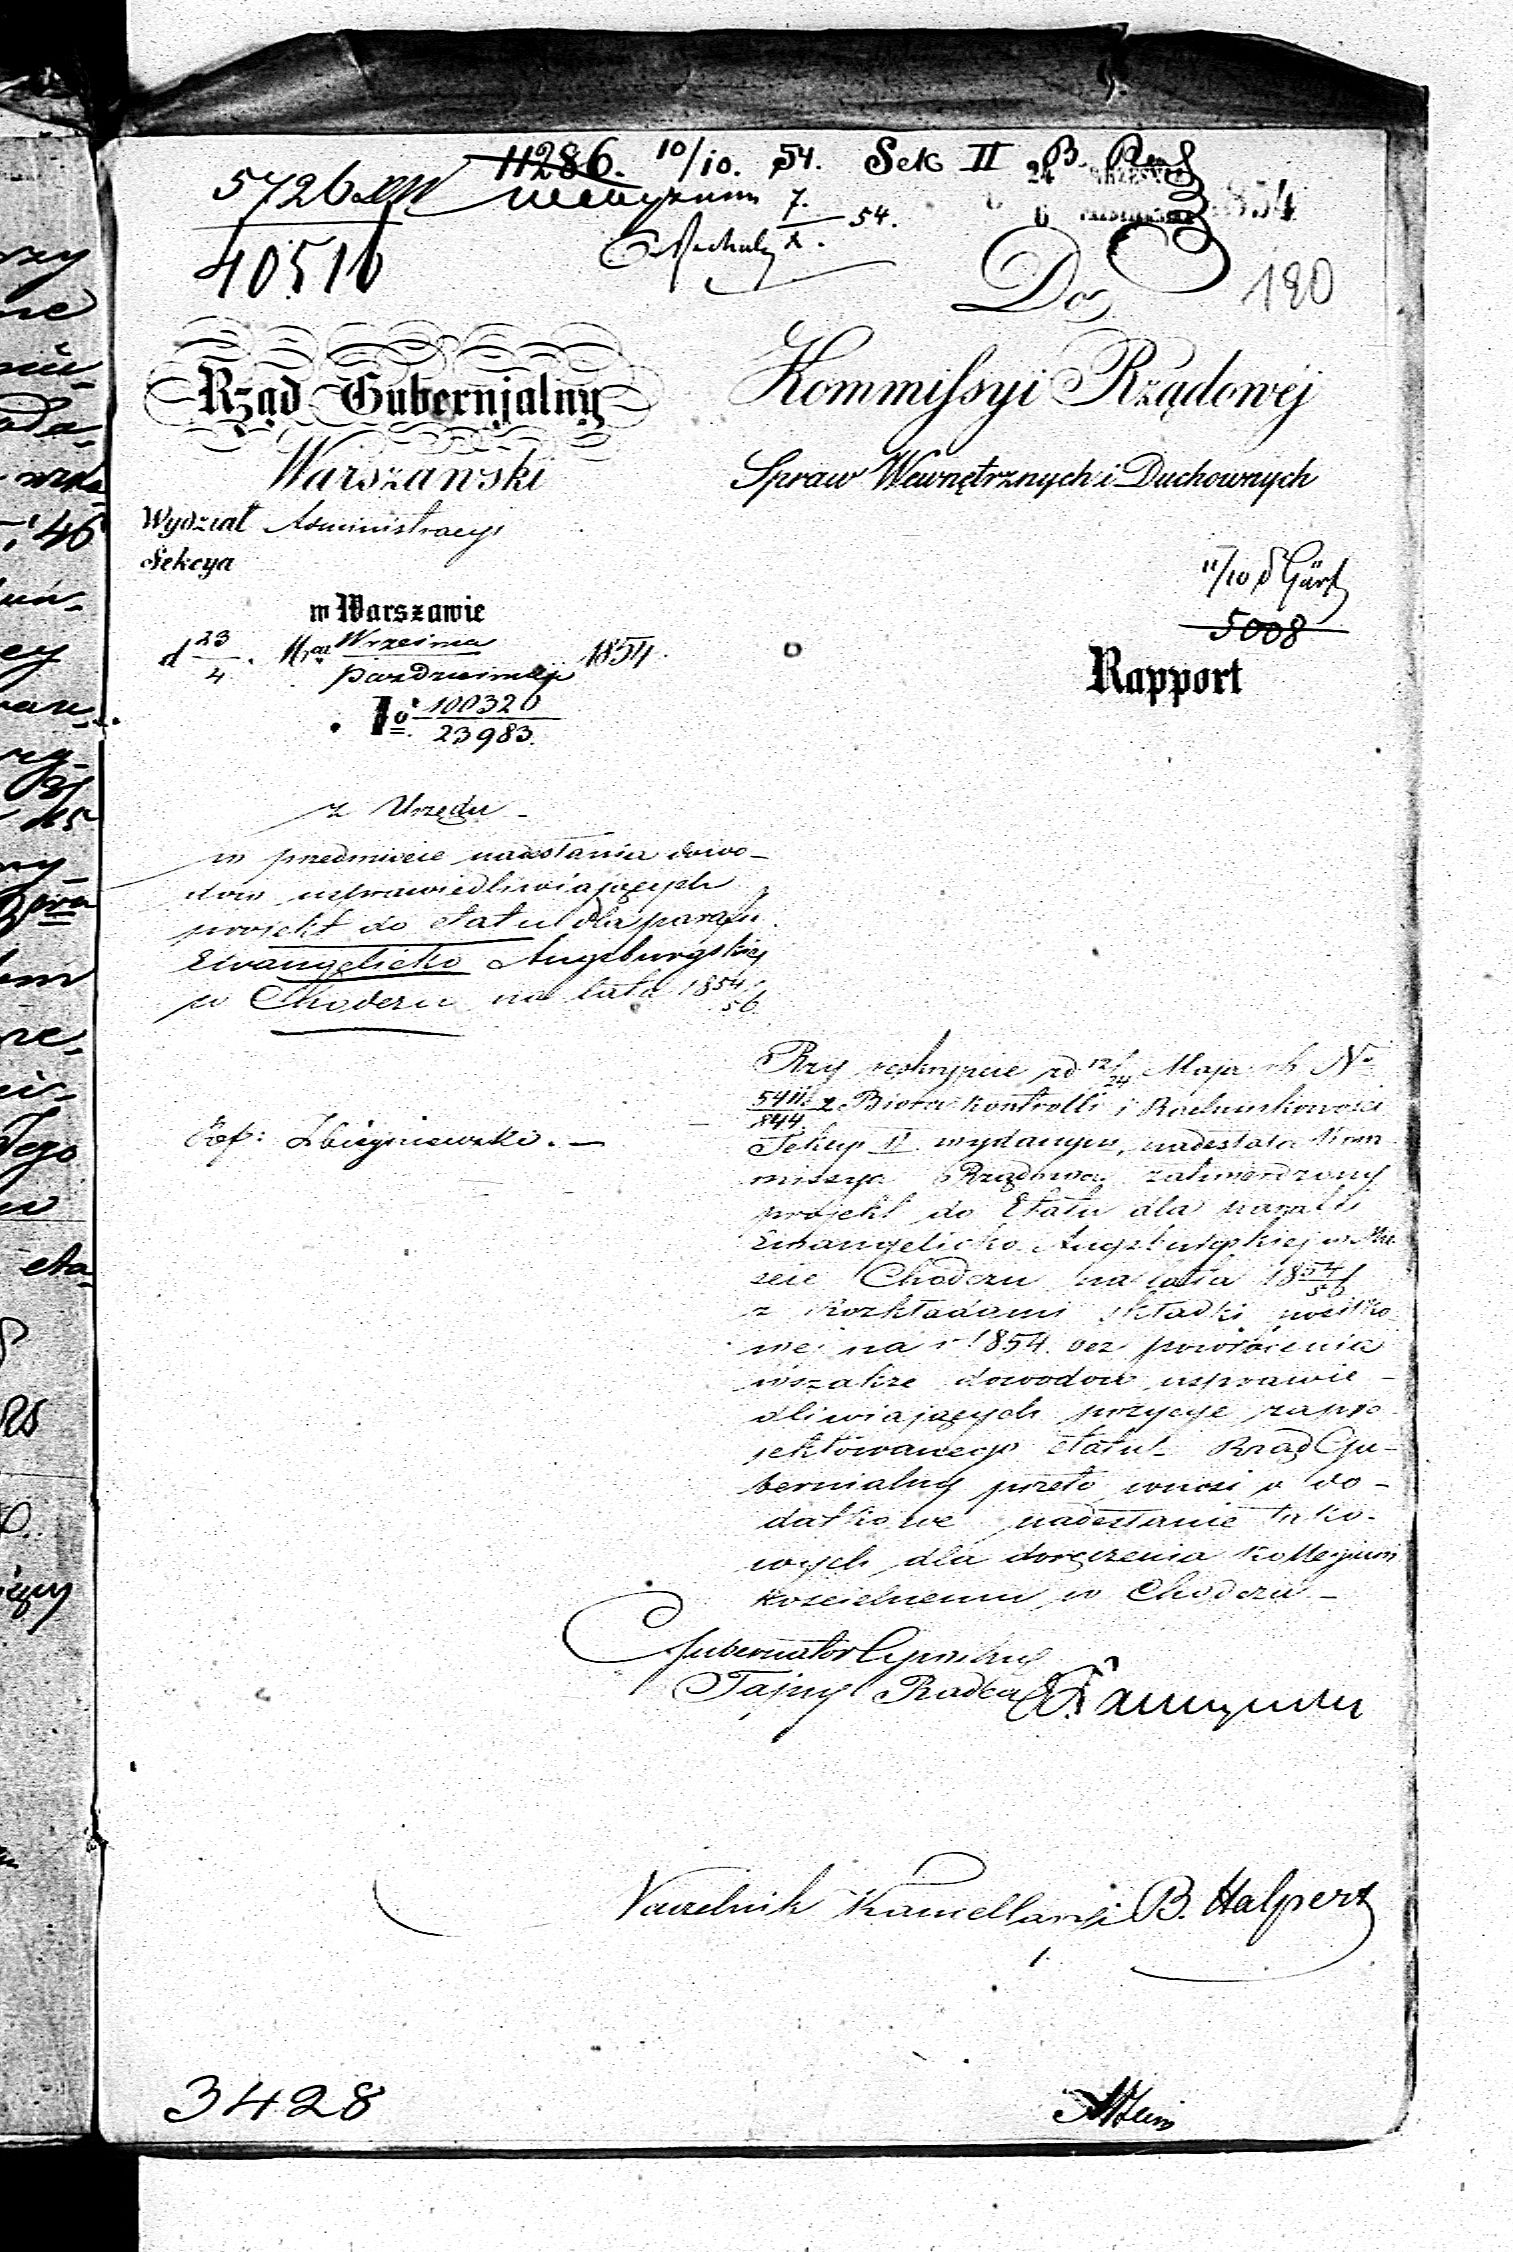 11286. 10/10. 54. Sek II
5726
40516
7/X. 54.
24
6
1854
Do
180
Rząd Gubernjalny
Warszawski
Kommissyi Rządowéj
Spraw Wewnętrznych i Duchownych
Wydział Administracyi
Sekcya
w Warszawie
d 23/4. Mca Września/Października 1854.
No 100320/23983.
11/10
5008
Rapport
z Urzędu
w przedmiocie nadesłania dowo-
dów usprawiedliwiających
projekt do etatu dla parafii
Ewangelicko Augsburgskiej
w Chodczu na lata 1854/56.
Przy reskrypcie z d 12/24 Maja rb No
z Biora Kontrolli i Rachunkowości
Sekcyi II wydanym, nadesłała Kom
missya Rządowa zatwierdzony
projekt do Etatu dla parafii
Ewangelicko Augsburgskiej w Mie
ście Chodczu na lata 1854/56
z Rozkładami składki posiłko
wej na r 1854. bez powrócenia
wszakże dowodów usprawie-
dliwiających pozycye zapro
jektowanego etatu. Rząd Gu-
bernialny przeto wnosi o do-
datkowe nadesłanie tako-
wych dla doręczenia Kollegium
Kościelnemu w Chodczu -
Ref: Zbiegniewski. -
Gubernator Cywilny
Tajny Radca
Naczelnik Kancellaryi B. Halpert
3428